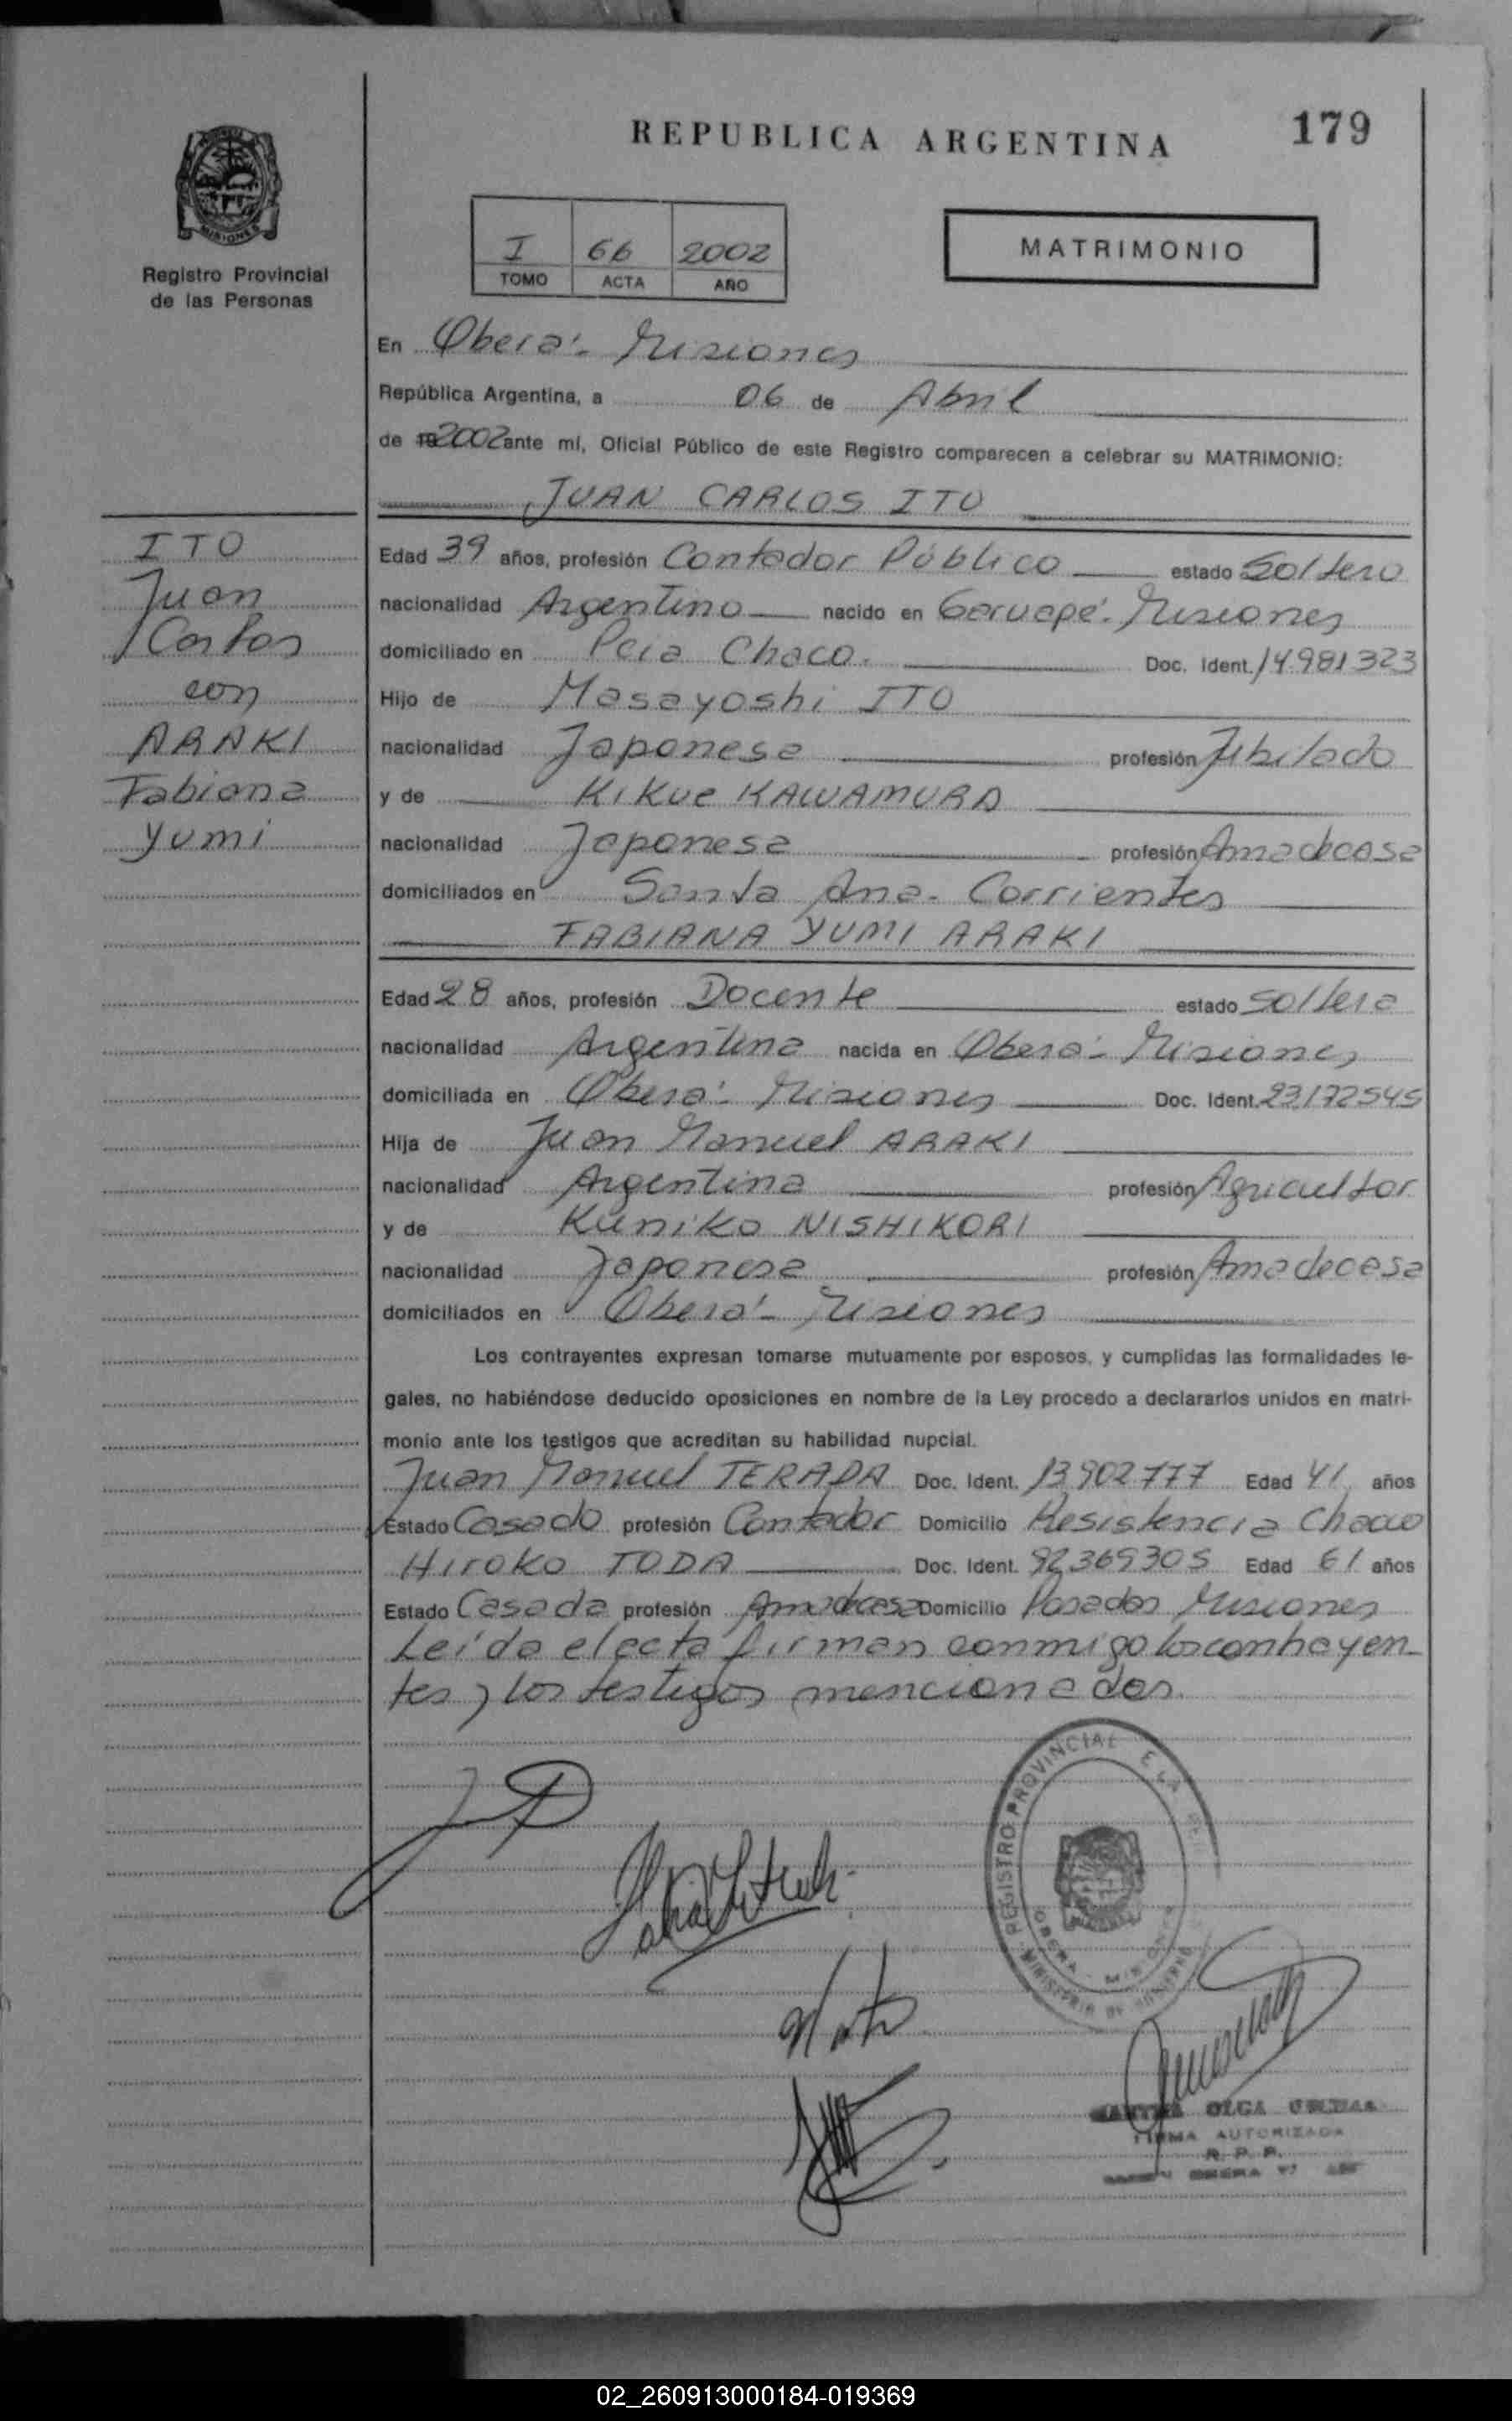 REPUBLICA ARGENTINA
179
MISIONES
Registro Provincial
de las Personas
I 66 2002
TOMO ACTA AÑO
MATRIMONIO
En Oberá - Misiones
República Argentina, a 06 de Abril
de 19 2002 ante mí, Oficial Público de este Registro comparecen a celebrar su MATRIMONIO:
JUAN CARLOS ITO
ITO
Juan
Carlos
con
ARAKI
Fabiana
Yumi
Edad 39 años, profesión Contador Público estado Soltero
nacionalidad Argentino nacido en Garuapé - Misiones
domiciliado en Pcia Chaco. Doc. Ident. 14.981323
Hijo de Masayoshi ITO
nacionalidad Japonesa profesión Jubilado
y de Kikue KAWAMURA
nacionalidad Japonesa profesión Amadecasa
domiciliados en Santa Ana - Corrientes
FABIANA YUMI ARAKI
Edad 28 años, profesión Docente estado Soltera
nacionalidad Argentina nacida en Oberá - Misiones
domiciliada en Oberá - Misiones Doc. Ident. 23172545
Hija de Juan Manuel ARAKI
nacionalidad Argentina profesión Agricultor
y de Kuniko NISHIKORI
nacionalidad Japonesa profesión Amadecasa
domiciliados en Oberá - Misiones
Los contrayentes expresan tomarse mutuamente por esposos, y cumplidas las formalidades le-
gales, no habiéndose deducido oposiciones en nombre de la Ley procedo a declararlos unidos en matri-
monio ante los testigos que acreditan su habilidad nupcial.
Juan Manuel TERADA Doc. Ident. 13902777 Edad 41 años
Estado Casado profesión Contador Domicilio Resistencia Chaco
Hiroko TODA Doc. Ident. 92369305 Edad 61 años
Estado Casada profesión Amadecasa Domicilio Posadas Misiones
Leída el acta firman conmigo los contrayen-
tes y los testigos mencionados.
REGISTRO PROVINCIAL
OBERA - MISIONES
MINISTERIO DE GOBIERNO
MARTHA OLGA
FIRMA AUTORIZADA
R. P. P.
OBERA
02_260913000184-019369